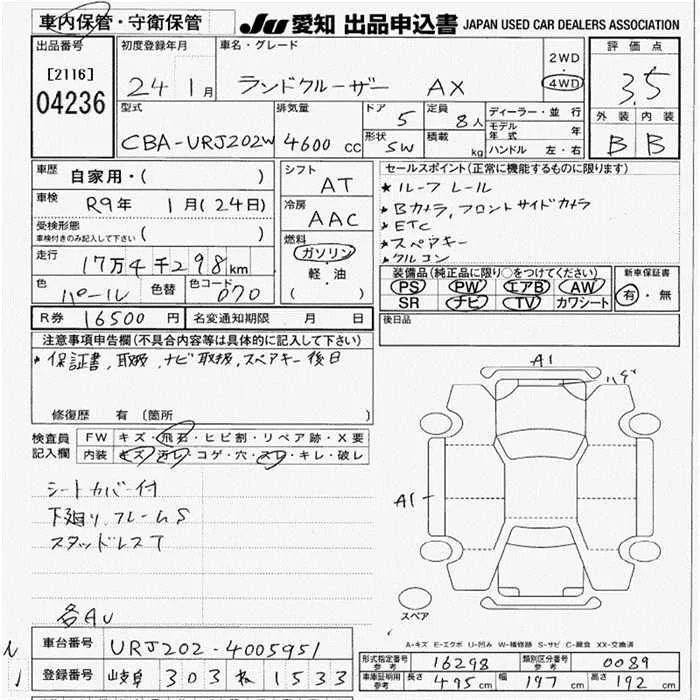 車内保管・守衛保管
JU 愛知 出品申込書 JAPAN USED CAR DEALERS ASSOCIATION
出品番号
[2116]
04236
初度登録年月
24 1月
車名・グレード
ランドクルーザー AX
2WD
・
4WD
評価点
3.5
外装 内装
B B
型式
CBA-URJ202W
排気量
4600 CC
ドア
5
定員
8人
形状
SW
積載
kg
ディーラー・並行
モデル年式 年
ハンドル 左・右
車歴
自家用・( )
車検
R9年 1月(24日)
受検形態
車検付きのみ記入して下さい ( )
走行
17万4千298km
色
パール
色替
色コード
070
シフト
AT
冷房
AAC
燃料
ガソリン
軽・油
( )
セールスポイント(正常に機能するものに限ります)
★ルーフレール
・Bカメラ,フロントサイドカメラ
・ETC
・スペアキー
・クルコン
装備品(純正品に限り○をつけてください)
PS PW エアB AW
SR ナビ TV カワシート
新車保証書
有・無
R券 16500円
名変通知期限 月 日
後日品
注意事項申告欄(不具合内容等は具体的に記入して下さい)
・保証書,取扱,ナビ取扱,スペアキー後日
修復歴 有 〔箇所 〕
検査員記入欄
FW キズ・飛石・ヒビ割・リペア跡・X要
内装 キズ・汚レ・コゲ・穴・スレ・キレ・破レ
シートカバー付
下廻り,フレームS
スタッドレスT
各AU
A1
ハゲ
A1
スペア
A-キズ E-エクボ U-凹み W-補修跡 S-サビ C-腐食 XX-交換済
車台番号
URJ202-4005951
登録番号
303 1533
形式指定番号
参考
16298
類別区分番号
参考
0089
車庫証明用
参考
長さ
495cm
幅
197cm
高さ
192cm